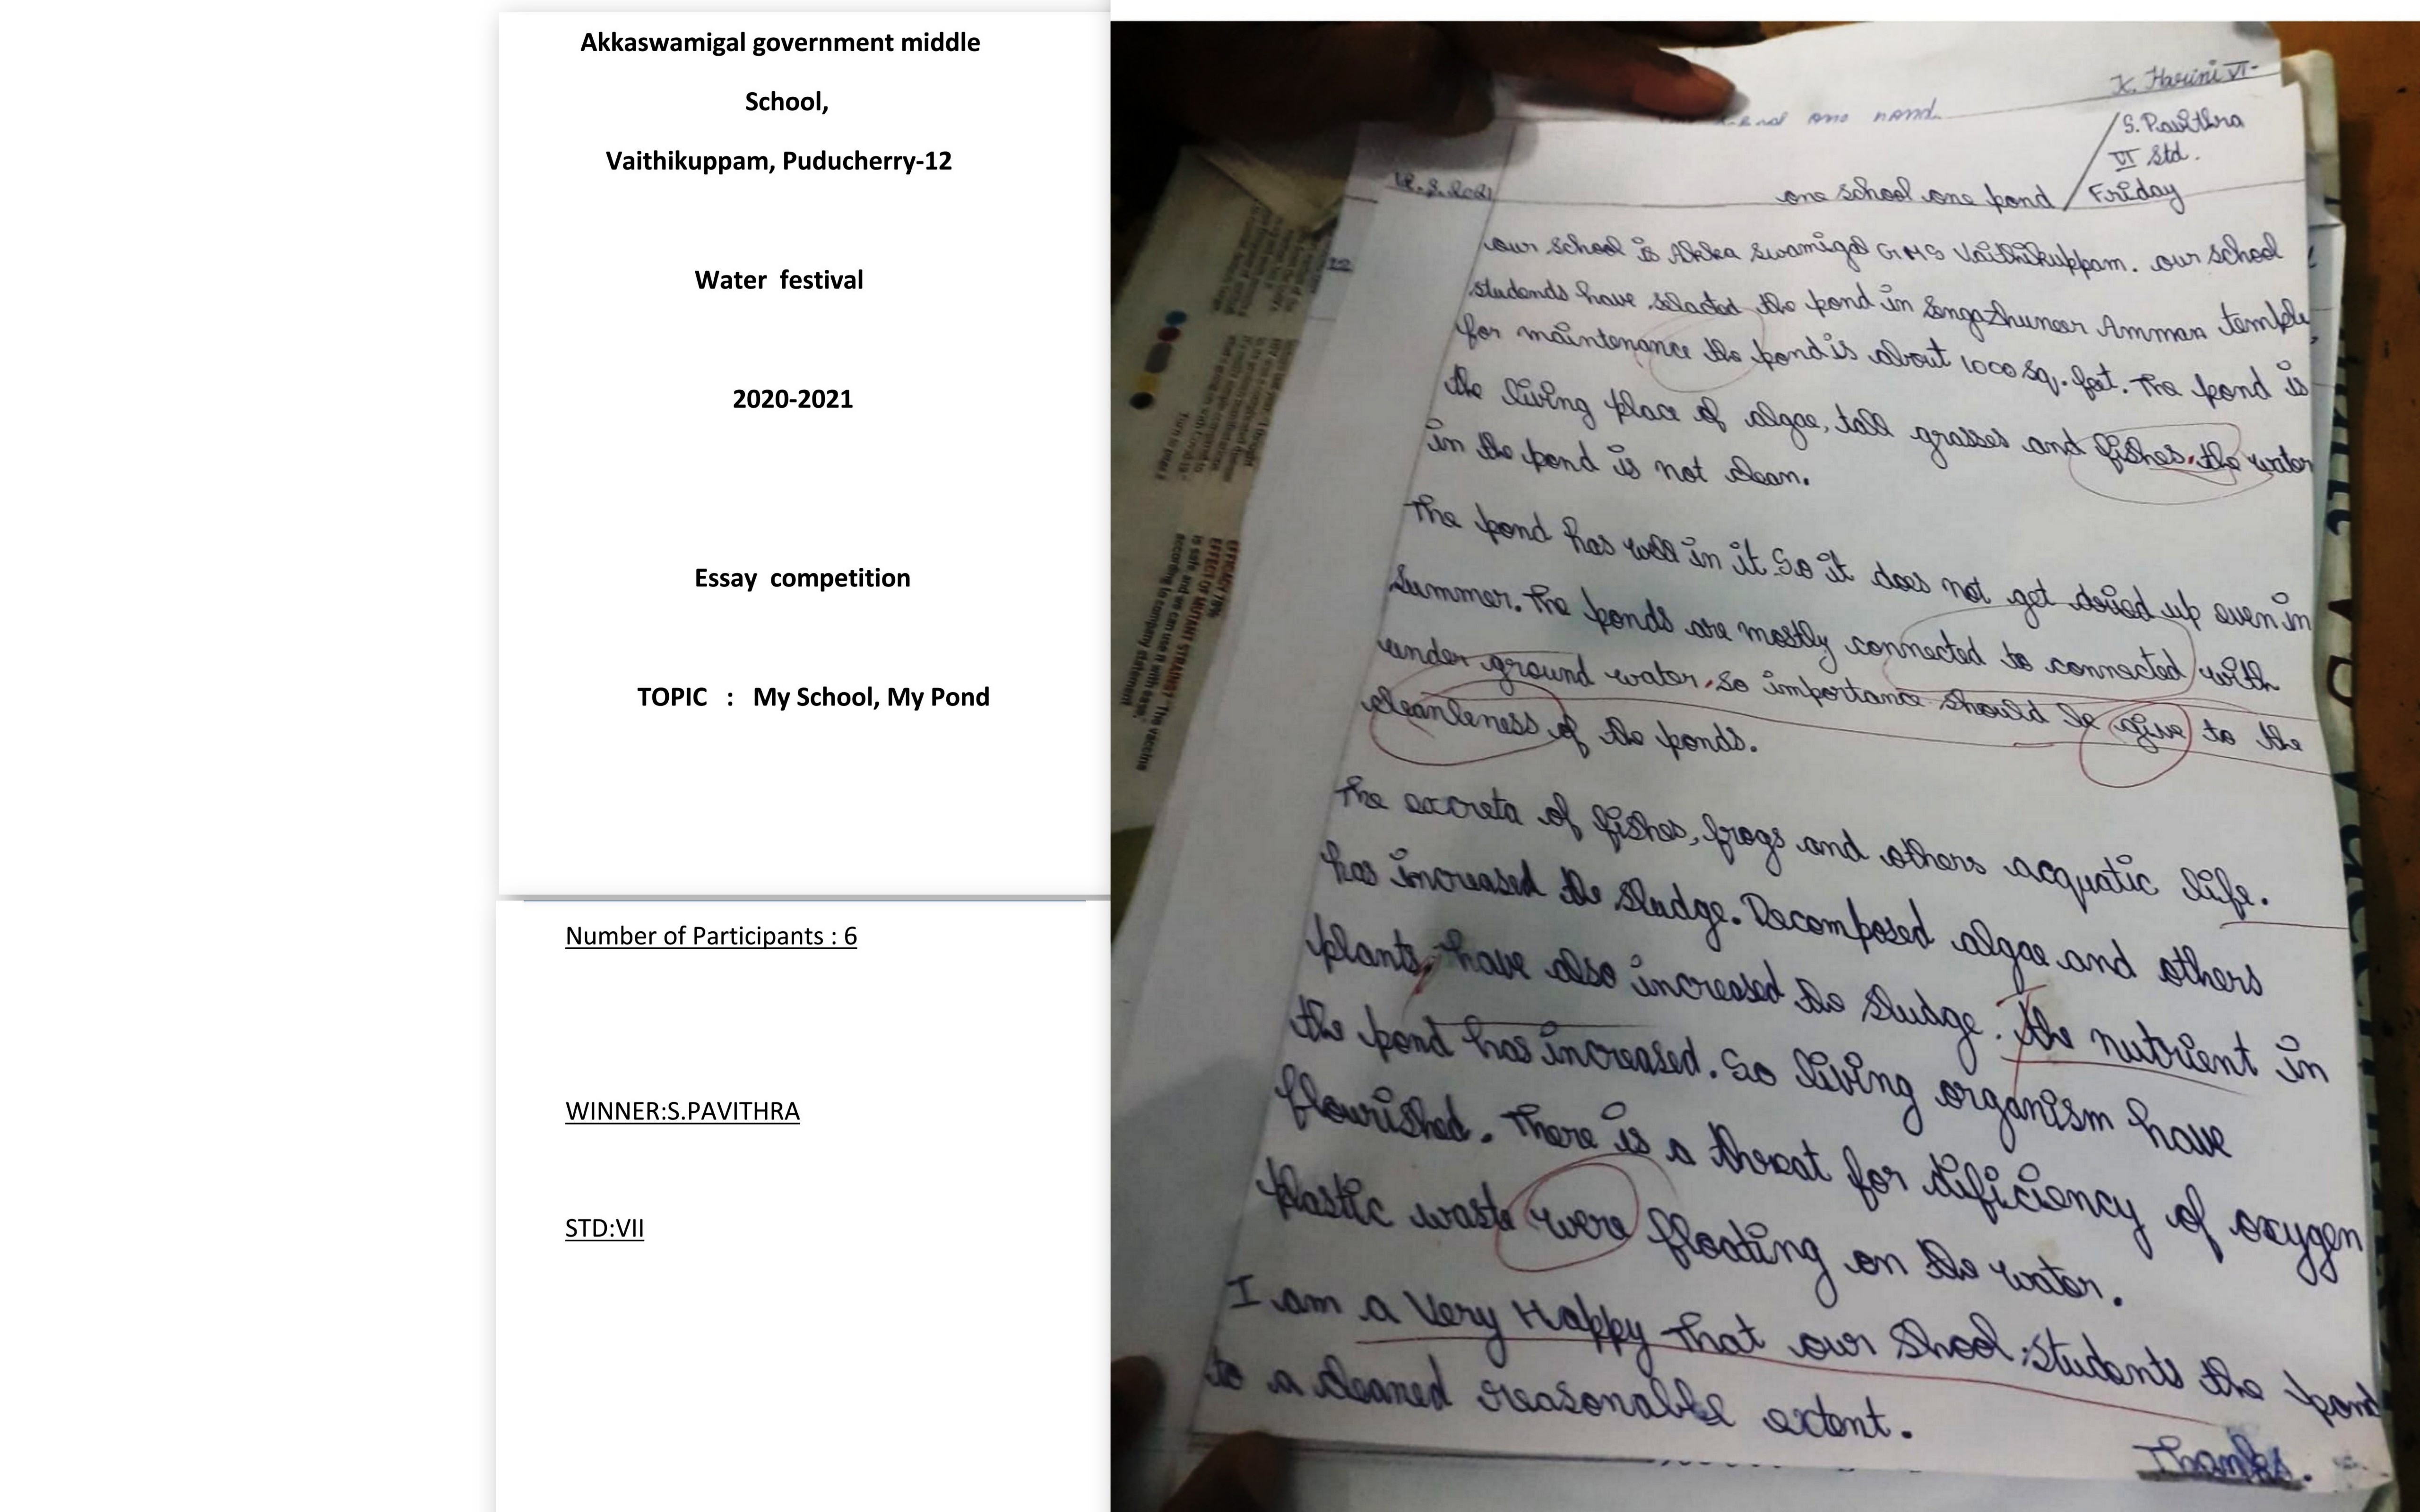 Akkaswamigal government middle
School,
Vaithikuppam, Puducherry-12
Water festival
2020-2021
Essay competition
TOPIC : My School, My Pond
Number of Participants : 6
WINNER:S.PAVITHRA
STD:VII
K. Harini VI
one pond
S. Pavithra
VI Std.
Friday
one school one pond
our school is Akka swamigal GMS Vaithikuppam. our school
students have selacted the pond in Sengazhuneer Amman temple
for maintenance the pond is about 1000 sq. feet. The pond is
the living place of algae, tall grasses and fishes. the water
in the pond is not clean.
The pond has well in it. So it does not get dried up even in
summer. The ponds are mostly connected to connected with
under ground water. So importance should be give to the
cleanleness of the ponds.
The excreta of fishes, frogs and others acquatic life.
has increased the sludge. Decomposed algae and others
plants, have also increased the sludge. The nutrient in
the pond has increased. So living organism have
flourished. There is a threat for dificiency of oxygen
plastic waste were floating on the water.
I am a Very Happy That our Shool students the pond
to a cleaned reasonable extent.
Thanks.
EFFICACY 70%
EFFECT OF MUTANT STRAINS? "The vaccine
is safe and we can use it with ease,"
according to company statement